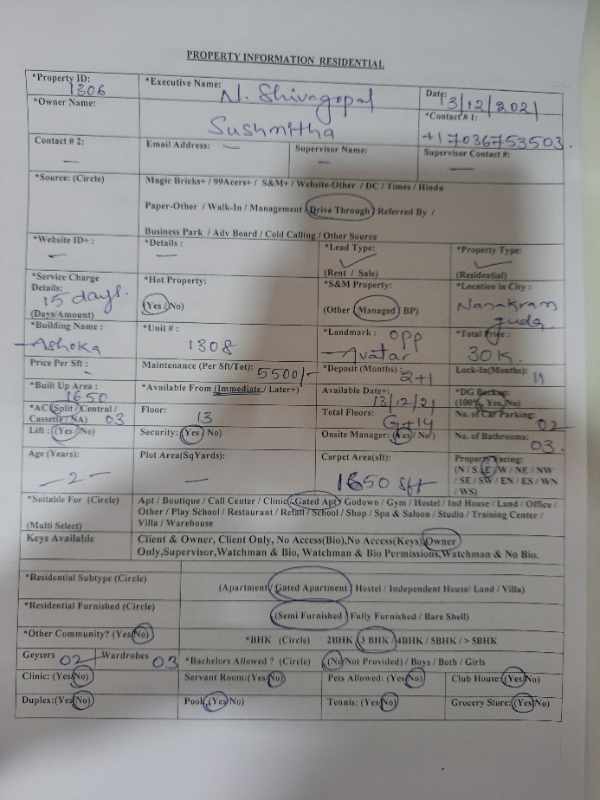 PROPERTY INFORMATION RESIDENTIAL
*Property ID: 1306 *Executive Name: N. Shivagopal Date: 13/12/2021
*Owner Name: Sushmitha *Contact # 1: +17036753503.
Contact # 2: — Email Address: — Supervisor Name: — Supervisor Contact #: —
*Source: (Circle) Magic Bricks+ / 99Acers+ / S&M+ / Website-Other / DC / Times / Hindu
Paper-Other / Walk-In / Management / Drive Through / Referred By /
Business Park / Adv Board / Cold Calling / Other Source
*Website ID+ : — *Details : — *Lead Type: (Rent / Sale) *Property Type: (Residential)
*Service Charge Details: 15 days. (Days/Amount) *Hot Property: (Yes / No) *S&M Property: (Other / Managed / BP) *Location in City: Nanakram guda
*Building Name : Ashoka *Unit # : 1308 *Landmark : opp Avatar *Total Price : 30K.
Price Per Sft : Maintenance (Per Sft/Tot): 5500/- *Deposit (Months) : 2+1 Lock-In(Months):
*Built Up Area : 1650 *Available From (Immediate / Later+) Available Date+: 13/12/21 *DG Backup: (100% Yes/No)
*AC (Split / Central / Cassette / NA) 03 Floor: 13 Total Floors: G+14 No. of Car Parking: 02
Lift : (Yes / No) Security: (Yes / No) Onsite Manager: (Yes / No) No. of Bathrooms: 03.
Age (Years): -2- Plot Area(SqYards): — Carpet Area(sft): 1650 sft Property Facing: (N / S / E / W / NE / NW / SE / SW / EN / ES / WN / WS)
*Suitable For (Circle) (Multi Select) Apt / Boutique / Call Center / Clinic / Gated Apt / Godown / Gym / Hostel / Ind House / Land / Office /
Other / Play School / Restaurant / Retail / School / Shop / Spa & Saloon / Studio / Training Center /
Villa / Warehouse
Keys Available Client & Owner, Client Only, No Access(Bio),No Access(Keys),Owner
Only,Supervisor,Watchman & Bio, Watchman & Bio Permissions,Watchman & No Bio.
*Residential Subtype (Circle) (Apartment / Gated Apartment / Hostel / Independent House/ Land / Villa)
*Residential Furnished (Circle) (Semi Furnished / Fully Furnished / Bare Shell)
*Other Community? (Yes/No) *BHK (Circle) 2BHK / 3 BHK / 4BHK / 5BHK / > 5BHK
Geysers 02 Wardrobes 03 *Bachelors Allowed ? (Circle) (No/Not Provided) / Boys / Both / Girls
Clinic: (Yes/No) Servant Room:(Yes/No) Pets Allowed: (Yes/No) Club House:(Yes/No)
Duplex:(Yes/No) Pool:(Yes/No) Tennis: (Yes/No) Grocery Store:(Yes/No)